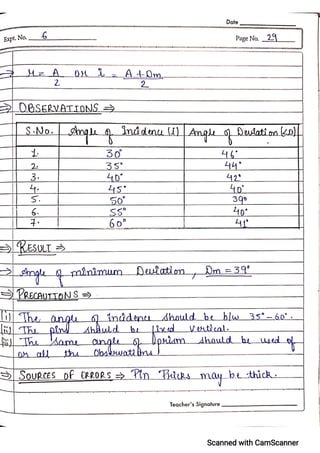 Date
Expt. No. 6
Page No. 29
⇒ r = A/2 OR i = A + Dm/2
⇒ OBSERVATIONS ⇒
S.No. Angle of Incidence (i) Angle of Deviation (D)
1. 30° 46°
2. 35° 44°
3. 40° 42°
4. 45° 40°
5. 50° 39°
6. 55° 40°
7. 60° 41°
⇒ RESULT ⇒
→ Angle of minimum Deviation, Dm = 39°
⇒ PRECAUTIONS ⇒
i) The angle of incidence should be b/w 35°-60°.
ii) The pins should be fixed vertical.
iii) The same angle of prism should be used
on all the observations
⇒ SOURCES OF ERRORS ⇒ Pin may be thick.
Teacher's Signature
Scanned with CamScanner